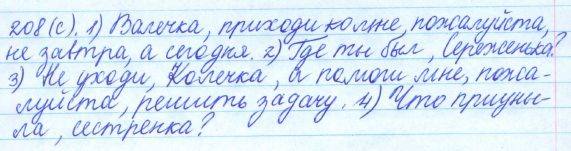 208(с). 1) Валечка, приходи ко мне, пожалуйста,
не завтра, а сегодня. 2) Где ты был, Сереженька?
3) Не уходи, Колечка, а помоги мне, пожа-
луйста, решить задачу. 4) Что приуны-
ла, сестренка?